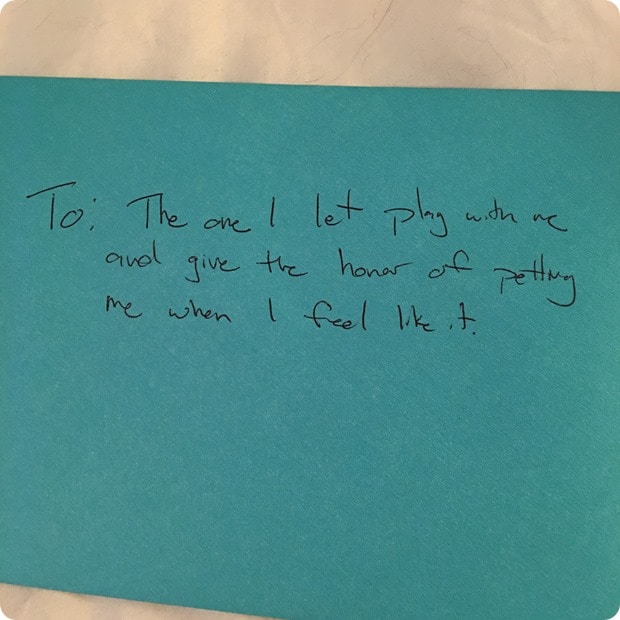 To: The one I let play with me
and give the honor of petting
me when I feel like it.